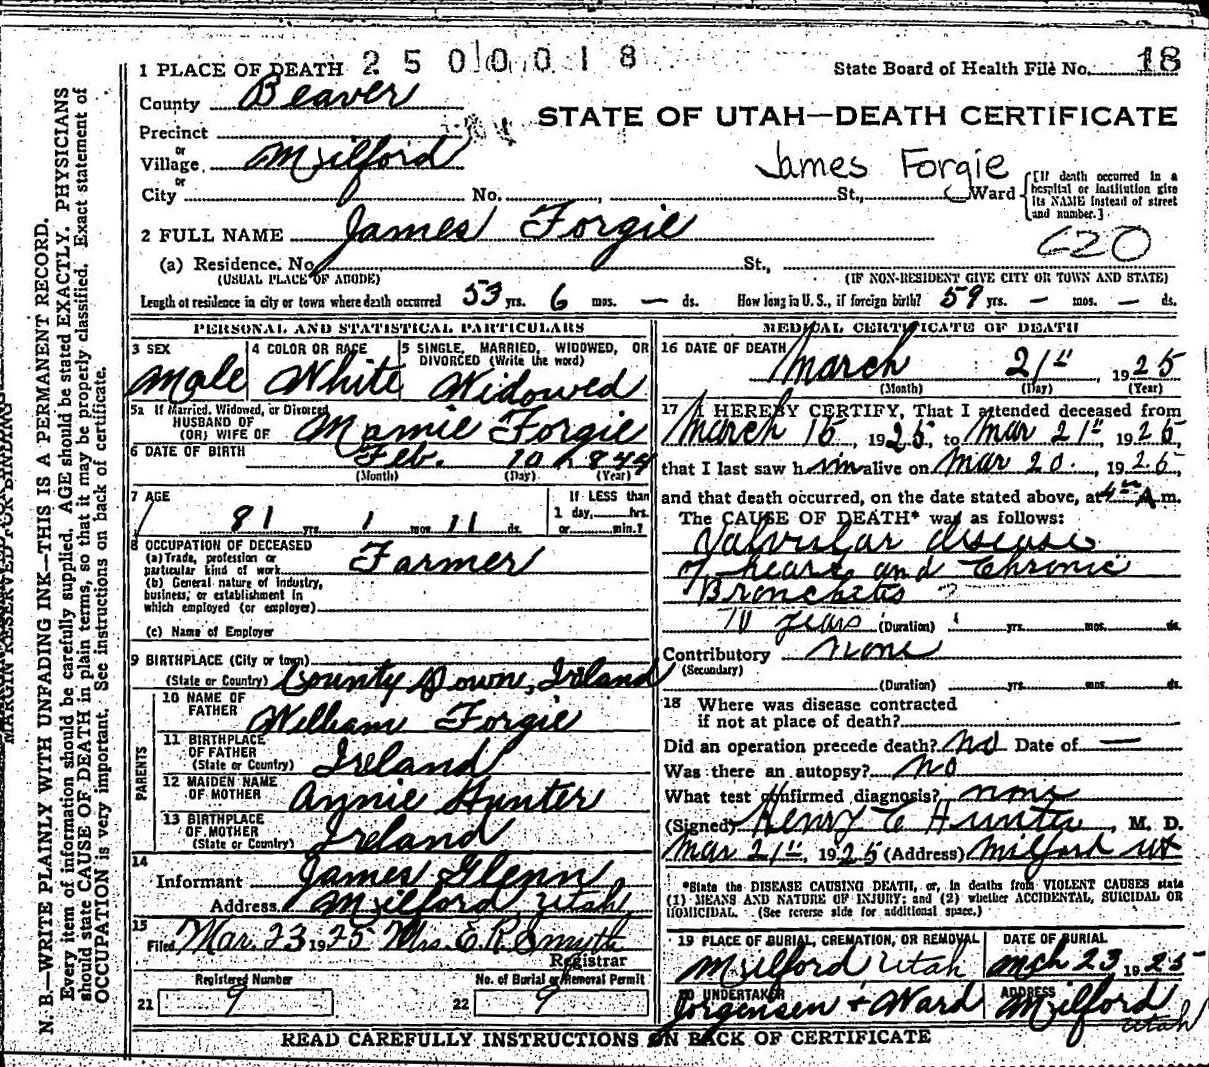 1 PLACE OF DEATH 2500018 State Board of Health File No. 18
County Beaver
STATE OF UTAH—DEATH CERTIFICATE
Precinct
or
Village Milford
James Forgie
or
City No. St., Ward {[If death occurred in a hospital or institution give its NAME instead of street and number.]
2 FULL NAME James Forgie
620
(a) Residence. No. St.,
(USUAL PLACE OF ABODE) (IF NON-RESIDENT GIVE CITY OR TOWN AND STATE)
Length of residence in city or town where death occurred 53 yrs. 6 mos. — ds. How long in U. S., if foreign birth? 59 yrs. — mos. — ds.
PERSONAL AND STATISTICAL PARTICULARS
3 SEX
Male
4 COLOR OR RACE
White
5 SINGLE, MARRIED, WIDOWED, OR
DIVORCED (Write the word)
Widowed
5a If Married, Widowed, or Divorced
HUSBAND OF
(OR) WIFE OF Mamie Forgie
6 DATE OF BIRTH Feb. 10 1844
(Month) (Day) (Year)
7 AGE
81 yrs. 1 mos. 11 ds.
If LESS than
1 day, hrs.
or min.?
8 OCCUPATION OF DECEASED
(a) Trade, profession or
particular kind of work Farmer
(b) General nature of industry,
business, or establishment in
which employed (or employer)
(c) Name of Employer
9 BIRTHPLACE (City or town)
(State or Country) County Down, Ireland
PARENTS
10 NAME OF
FATHER William Forgie
11 BIRTHPLACE
OF FATHER
(State or Country) Ireland
12 MAIDEN NAME
OF MOTHER Annie Hunter
13 BIRTHPLACE
OF MOTHER
(State or Country) Ireland
14
Informant James Glenn
Address Milford Utah
15
Filed Mar. 23 1925 Mrs. E. R. Smyth
Registrar
Registered Number
21 9
No. of Burial or Removal Permit
22 9
MEDICAL CERTIFICATE OF DEATH
16 DATE OF DEATH
March 21" 1925
(Month) (Day) (Year)
17 I HEREBY CERTIFY, That I attended deceased from
March 15, 1925, to Mar 21", 1925,
that I last saw him alive on Mar 20., 1925,
and that death occurred, on the date stated above, at 4 A m.
The CAUSE OF DEATH* was as follows:
Valvular disease
of heart and Chronic
Bronchitis ?
10 years (Duration) yrs. mos. ds.
Contributory none
(Secondary)
(Duration) yrs. mos. ds.
18 Where was disease contracted
if not at place of death?
Did an operation precede death? no Date of —
Was there an autopsy? no
What test confirmed diagnosis? none
(Signed) Henry E Hunter, M. D.
Mar 21", 1925 (Address) Milford Ut
*State the DISEASE CAUSING DEATH, or, in deaths from VIOLENT CAUSES state
(1) MEANS AND NATURE OF INJURY; and (2) whether ACCIDENTAL, SUICIDAL OR
HOMICIDAL. (See reverse side for additional space.)
19 PLACE OF BURIAL, CREMATION, OR REMOVAL
Milford Utah
DATE OF BURIAL
Mch 23 1925
20 UNDERTAKER
Jorgensen + Ward
ADDRESS
Milford
Utah
READ CAREFULLY INSTRUCTIONS ON BACK OF CERTIFICATE
MARGIN RESERVED FOR BINDING
N. B.—WRITE PLAINLY WITH UNFADING INK—THIS IS A PERMANENT RECORD.
Every item of information should be carefully supplied. AGE should be stated EXACTLY. PHYSICIANS
should state CAUSE OF DEATH in plain terms, so that it may be properly classified. Exact statement of
OCCUPATION is very important. See instructions on back of certificate.